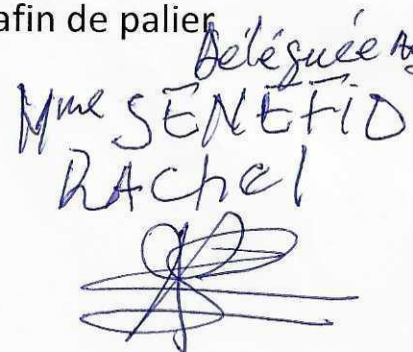 afin de palier
Déléguée
Mme SENEFIO
RAchel